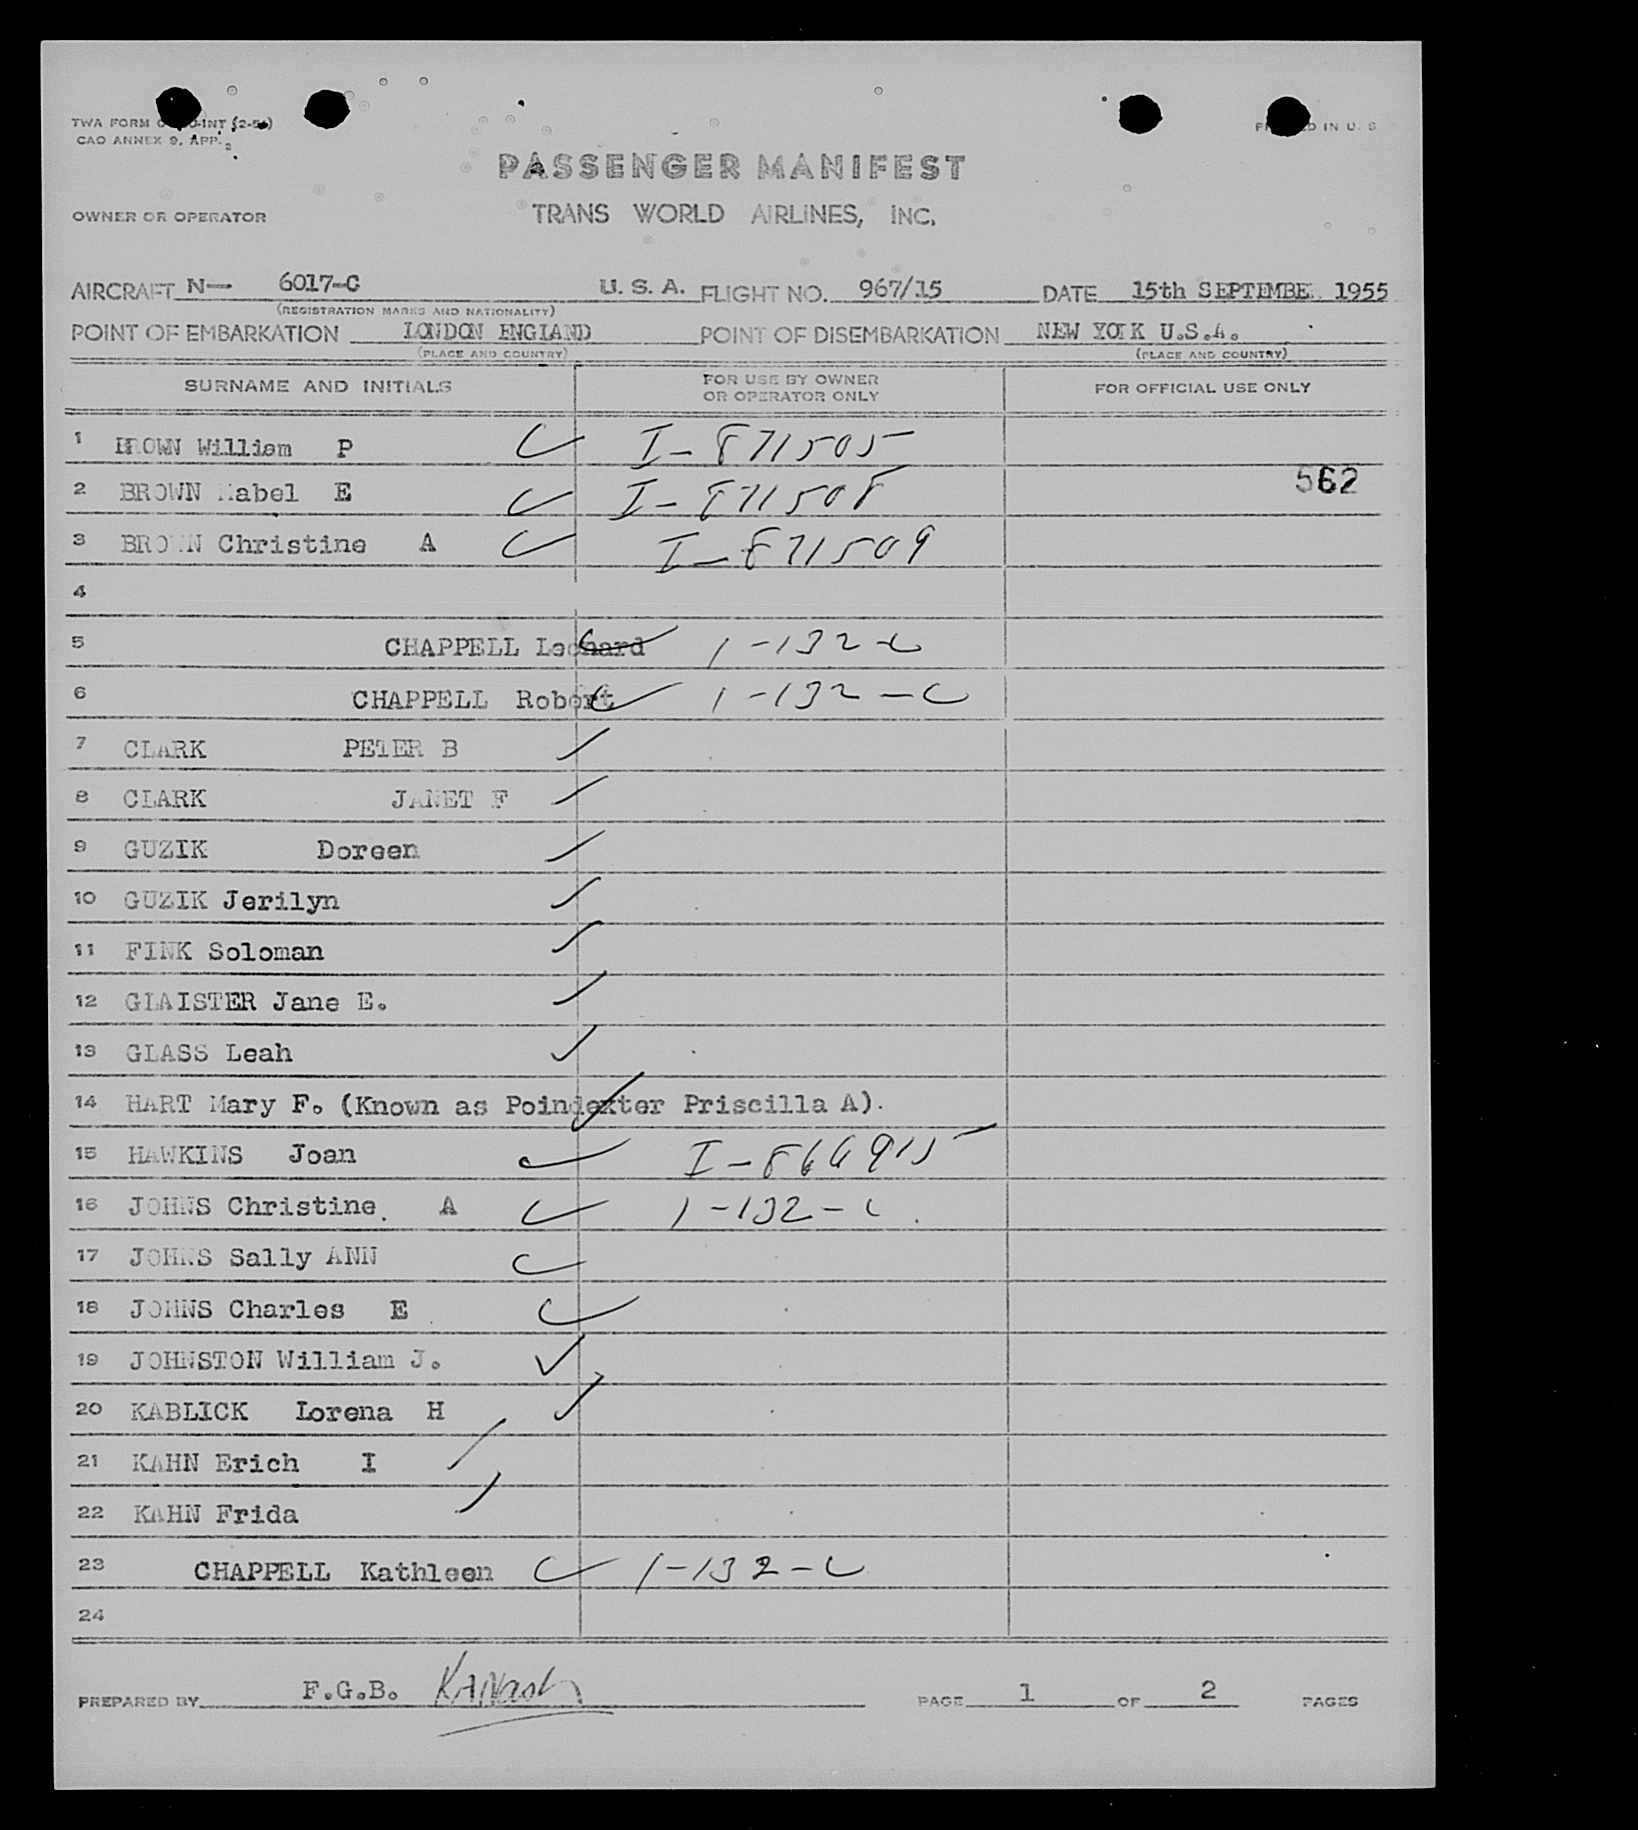 TWA FORM
PRINTED IN U. S
CAO ANNEX 9, APP. 2
PASSENGER MANIFEST
OWNER OR OPERATOR TRANS WORLD AIRLINES, INC.
AIRCRAFT N— 6017-C U. S. A. FLIGHT NO. 967/15 DATE 15th SEPTEMBE. 1955
(REGISTRATION MARKS AND NATIONALITY)
POINT OF EMBARKATION LONDON ENGLAND POINT OF DISEMBARKATION NEW YORK U.S.A.
(PLACE AND COUNTRY) (PLACE AND COUNTRY)
SURNAME AND INITIALS FOR USE BY OWNER OR OPERATOR ONLY FOR OFFICIAL USE ONLY
1 BROWN William P C I-871505
562
2 BROWN Mabel E C I-871508
3 BROWN Christine A C I-871509
4
5 CHAPPELL Leonard C 1-132-C
6 CHAPPELL Robert C 1-132-C
7 CLARK PETER B
8 CLARK JANET F
9 GUZIK Doreen
10 GUZIK Jerilyn
11 FINK Soloman
12 GLAISTER Jane E.
13 GLASS Leah
14 HART Mary F. (Known as Poindexter Priscilla A).
15 HAWKINS Joan I-866915
16 JOHNS Christine. A C 1-132-C
17 JOHNS Sally ANN C
18 JOHNS Charles E C
19 JOHNSTON William J.
20 KABLICK Lorena H
21 KAHN Erich I
22 KAHN Frida
23 CHAPPELL Kathleen C 1-132-C
24
PREPARED BY F.G.B. PAGE 1 OF 2 PAGES